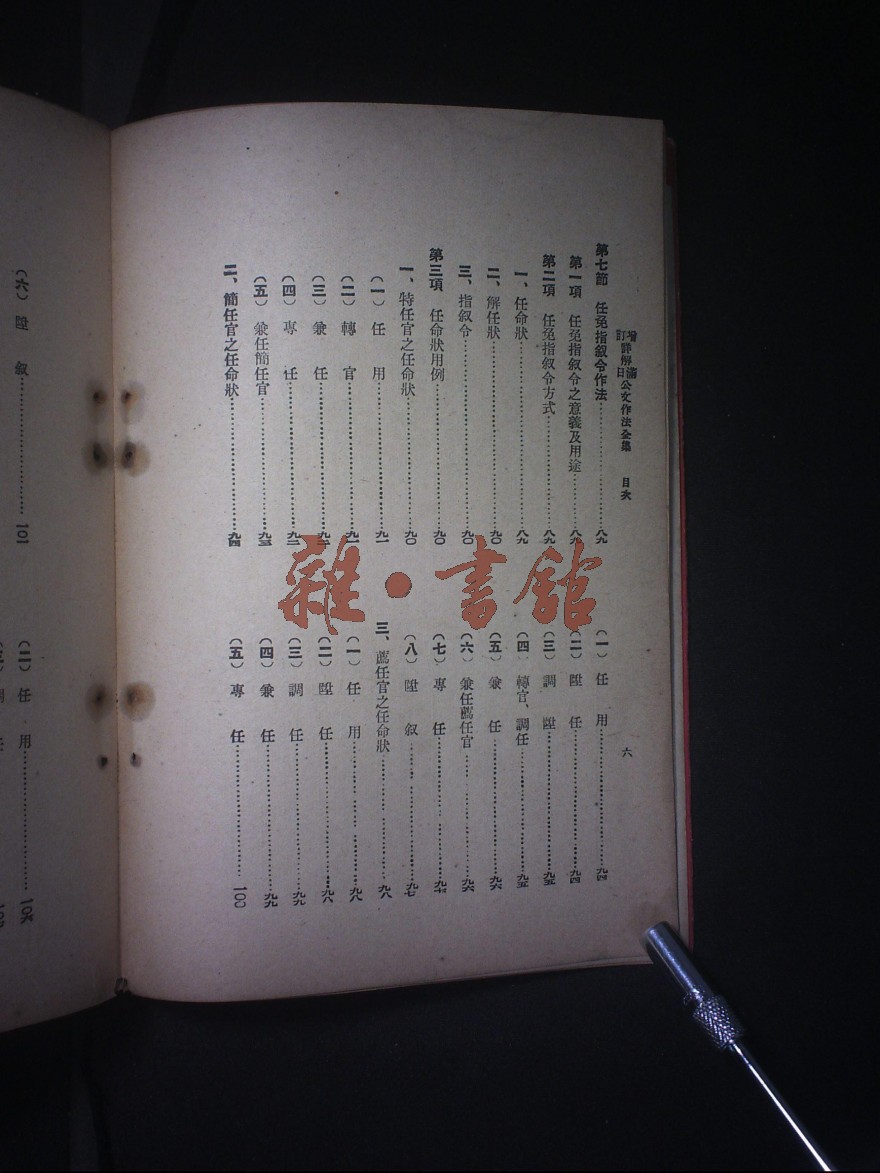 增訂詳解滿日公文作法全集 目次 六
第七節 任免指叙令作法……八九
第一項 任免指叙令之意義及用途……八九
第二項 任免指叙令方式……八九
一、任命狀……八九
二、解任狀……九〇
三、指叙令……九〇
第三項 任命狀用例……九〇
一、特任官之任命狀……九〇
(一)任 用……九一
(二)轉 官……九一
(三)兼 任……九二
(四)專 任……九二
(五)兼任簡任官……九三
二、簡任官之任命狀……九四
(一)任 用……九四
(二)陞 任……九四
(三)調 陞……九五
(四)轉官、調任……九五
(五)兼 任……九六
(六)兼任薦任官……九六
(七)專 任……九七
(八)陞 叙……九七
三、薦任官之任命狀……九八
(一)任 用……九八
(二)陞 任……九八
(三)調 任……九九
(四)兼 任……九九
(五)專 任……一〇〇
(六)陞 叙……一〇一
(二)任 用……一〇六
雜·書館